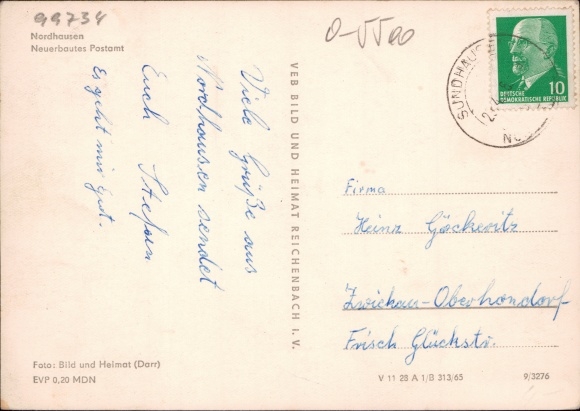 99734
Nordhausen
Neuerbautes Postamt
Viele Grüße aus
Nordhausen sendet
Euch Stefan
Es geht mir gut.
Foto: Bild und Heimat (Darr)
EVP 0,20 MDN
VEB BILD UND HEIMAT REICHENBACH I. V.
DEUTSCHE
DEMOKRATISCHE REPUBLIK
10
Firma
Heinz Göckeritz
Zwickau-Oberhondorf
Frisch Glückstr.
V 11 28 A 1/B 313/65
9/3276